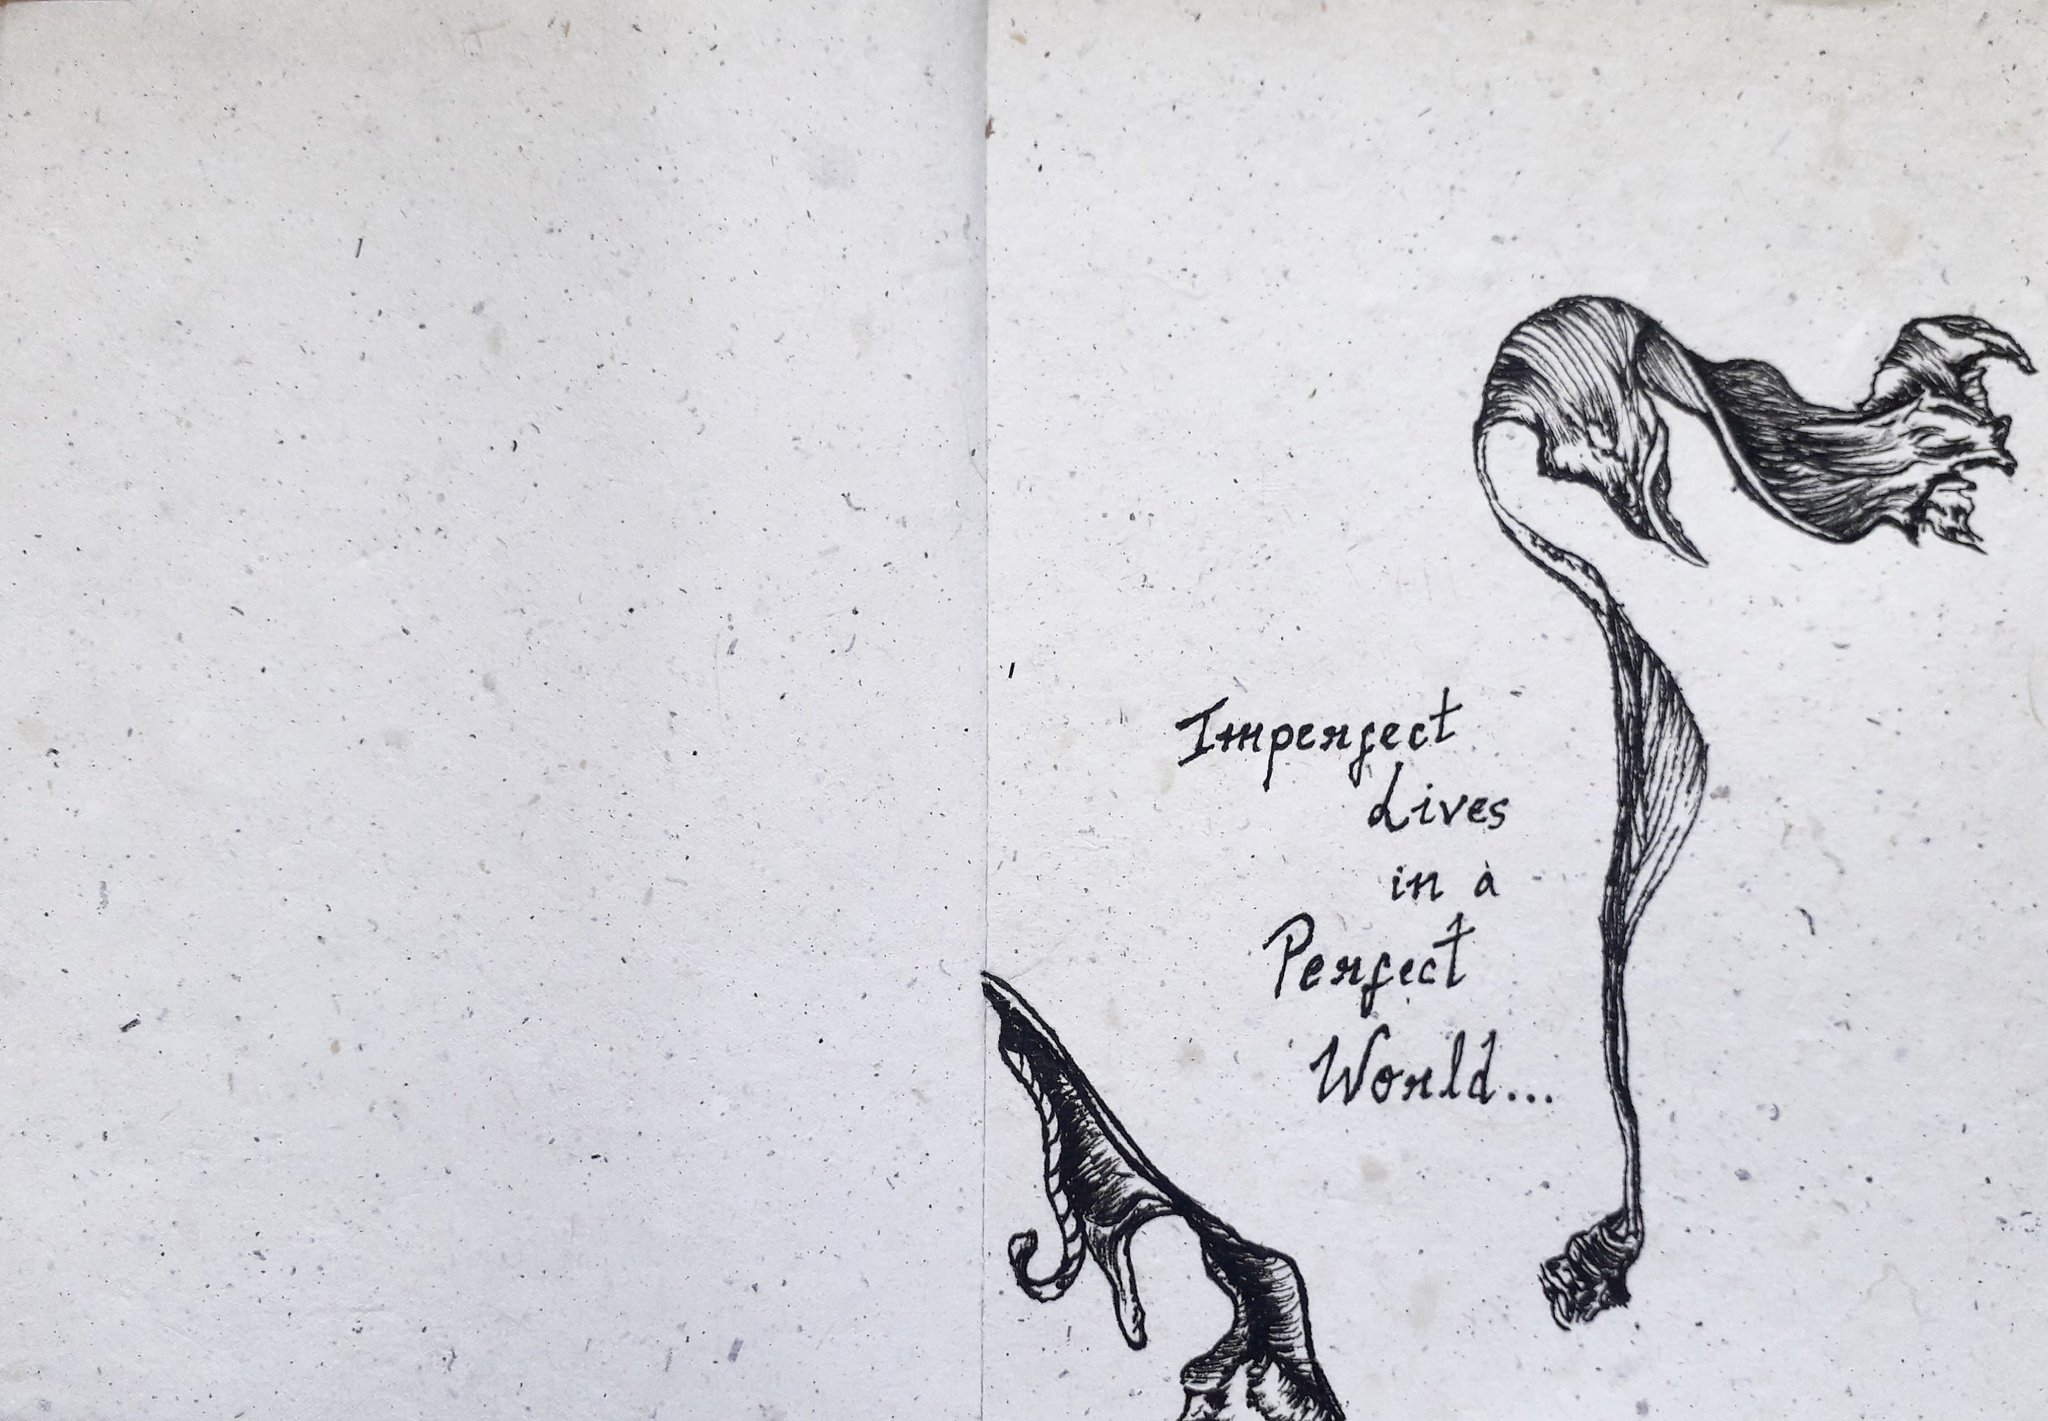 Imperfect
Lives
in a
Perfect
World...